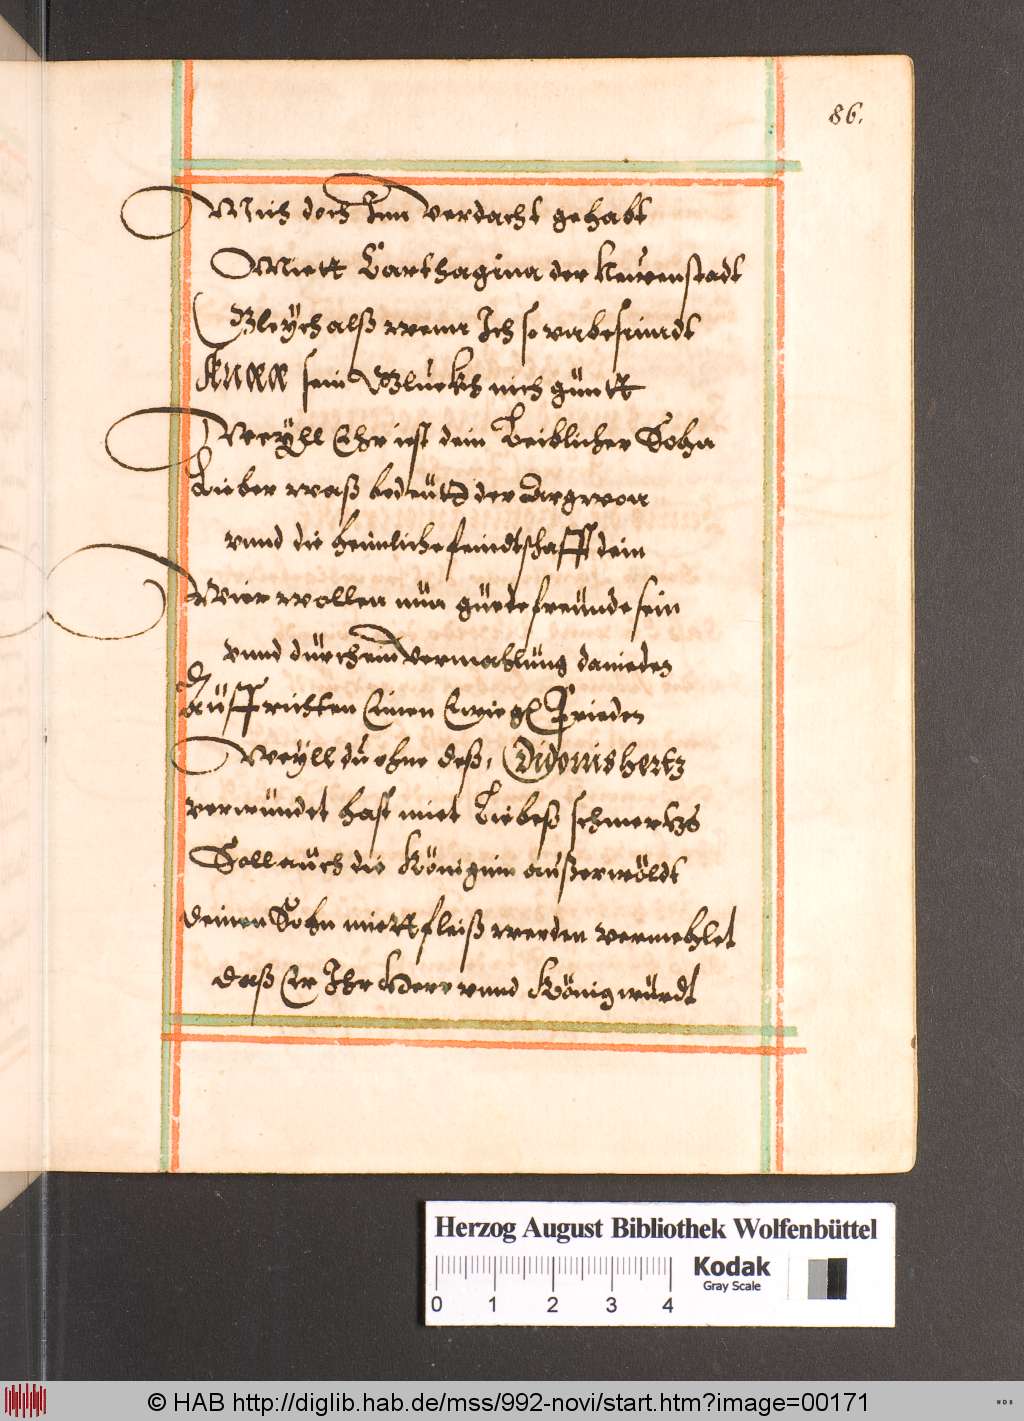 86.
Mich doch Inn verdacht gehabt
Miett Carthagina der Neuenstadt
Gleych alß wenn Ich so unbesindt
sein Gluckh nich güntt
Weyhl Ehr ist dein Leiblicher Sohn
Lieber waß bedeütt der Argwon
vnnd die heimliche feindtschafft dein
Wier wollen nun guede freunde sein
vnnd durch ein vermahlung danieden
Auffrichten Einen Ewigen Frieden
Weyll du ohne deß, Didonis hertz
verwundet hast miet Liebeß schmertz
Soll auch die Königinn außerwöldt
deinen Sohn miett fleiß werden vermehlet
daß Er Ihr Herr vnnd König wurdt
Herzog August Bibliothek Wolfenbüttel
Kodak
Gray Scale
0 1 2 3 4
© HAB http://diglib.hab.de/mss/992-novi/start.htm?image=00171